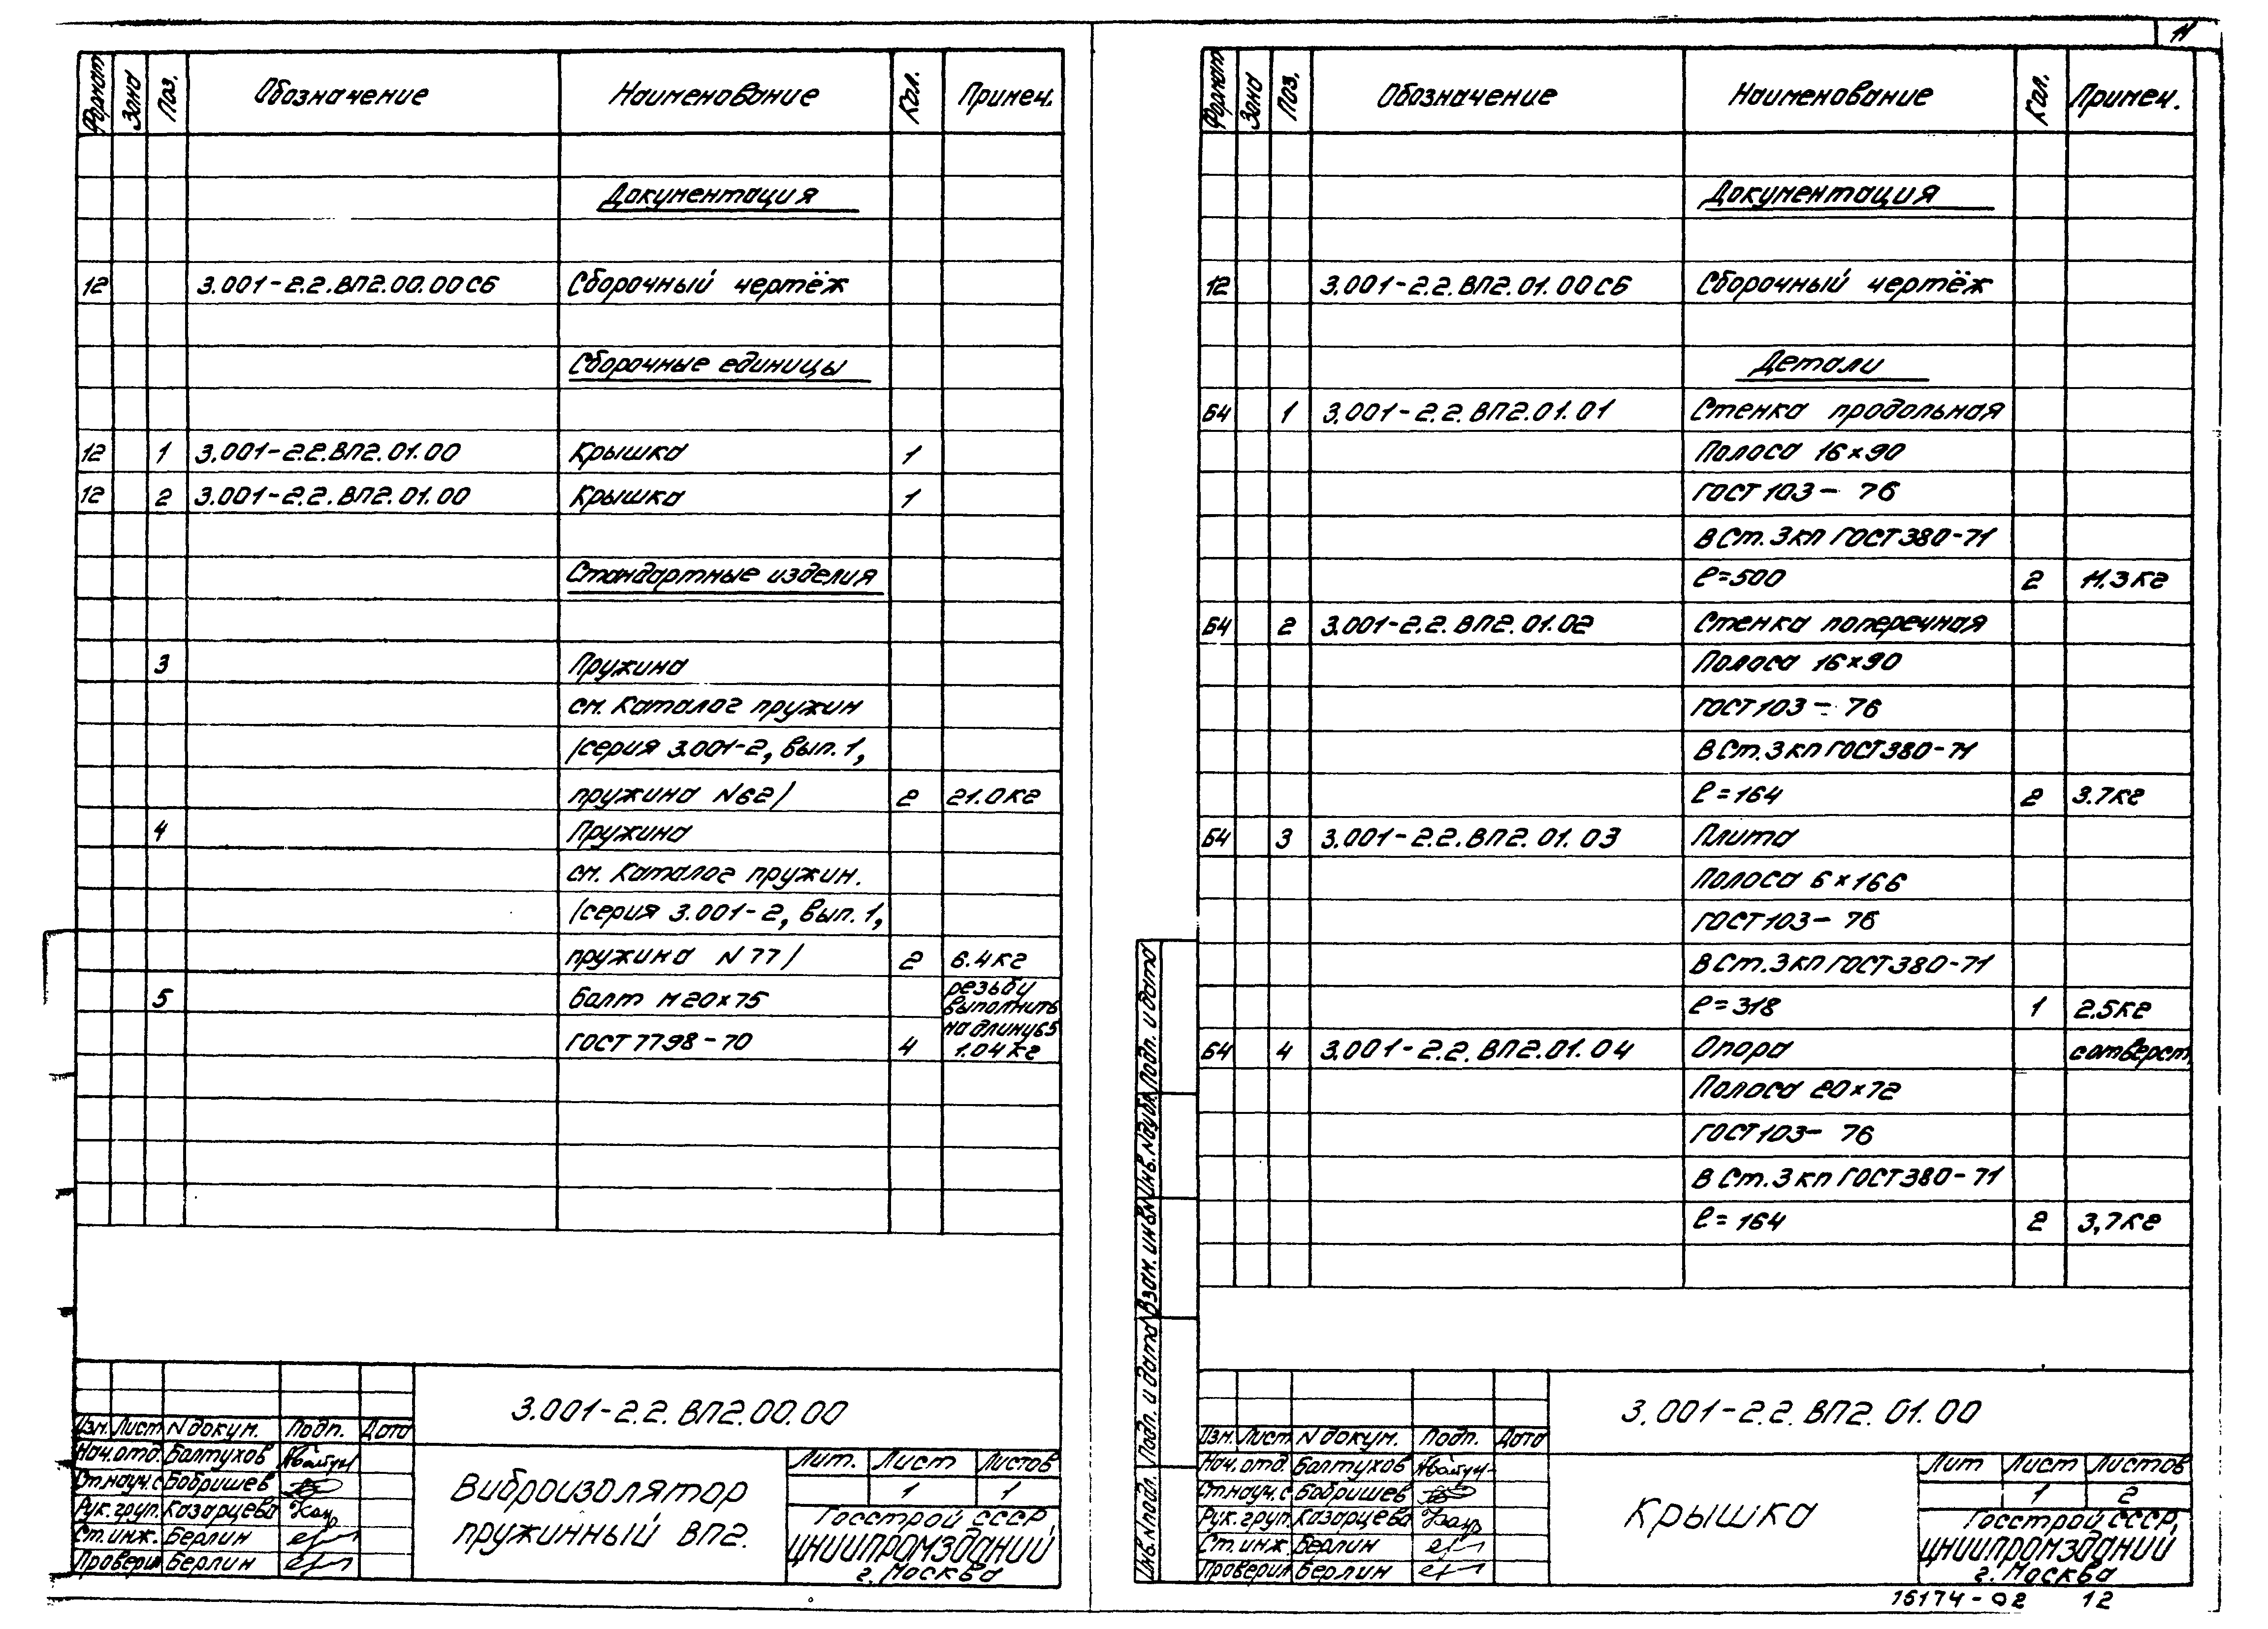 11
Формат Зона Поз. Обозначение Наименование Кол. Примеч.
Документация
12 3.001-2.2.ВП2.00.00СБ Сборочный чертёж
Сборочные единицы
12 1 3.001-2.2.ВП2.01.00 Крышка 1
12 2 3.001-2.2.ВП2.01.00 Крышка 1
Стандартные изделия
3 Пружина
см. Каталог пружин
/серия 3.001-2, вып. 1,
пружина N62/ 2 21.0кг
4 Пружина
см. Каталог пружин.
/серия 3.001-2, вып. 1,
пружина N77/ 2 6.4кг
5 Болт М20×75 резьбу
выполнить
на длину 65
ГОСТ 7798-70 4 1.04кг
3.001-2.2.ВП2.00.00
Изм. Лист N докум. Подп. Дата
Нач.отд. Балтухов
Ст.науч.с Бобришев
Рук.груп. Казарцева
Ст.инж. Берлин
Проверил Берлин
Виброизолятор
пружинный ВП2.
Лит. Лист Листов
1 1
Госстрой СССР,
ЦНИИПРОМЗДАНИЙ
г. Москва
Формат Зона Поз. Обозначение Наименование Кол. Примеч.
Документация
12 3.001-2.2.ВП2.01.00СБ Сборочный чертёж
Детали
Б4 1 3.001-2.2.ВП2.01.01 Стенка продольная
Полоса 16×90
ГОСТ 103-76
ВСт.3кп ГОСТ 380-71
ℓ=500 2 11.3кг
Б4 2 3.001-2.2.ВП2.01.02 Стенка поперечная
Полоса 16×90
ГОСТ 103-76
ВСт.3кп ГОСТ 380-71
ℓ=164 2 3.7кг
Б4 3 3.001-2.2.ВП2.01.03 Плита
Полоса 6×166
ГОСТ 103-76
ВСт.3кп ГОСТ 380-71
ℓ=318 1 2.5кг
Б4 4 3.001-2.2.ВП2.01.04 Опора сотверст.
Полоса 20×72
ГОСТ 103-76
ВСт.3кп ГОСТ 380-71
ℓ=164 2 3,7кг
Инв.Nподл. Подп. и дата Взам.инв.N Инв.Nдубл. Подп. и дата
3.001-2.2.ВП2.01.00
Изм. Лист N докум. Подп. Дата
Нач.отд. Балтухов
Ст.науч.с Бобришев
Рук.груп. Казарцева
Ст.инж. Берлин
Проверил Берлин
Крышка
Лит Лист Листов
1 2
Госстрой СССР,
ЦНИИПРОМЗДАНИЙ
г. Москва
15174-02 12